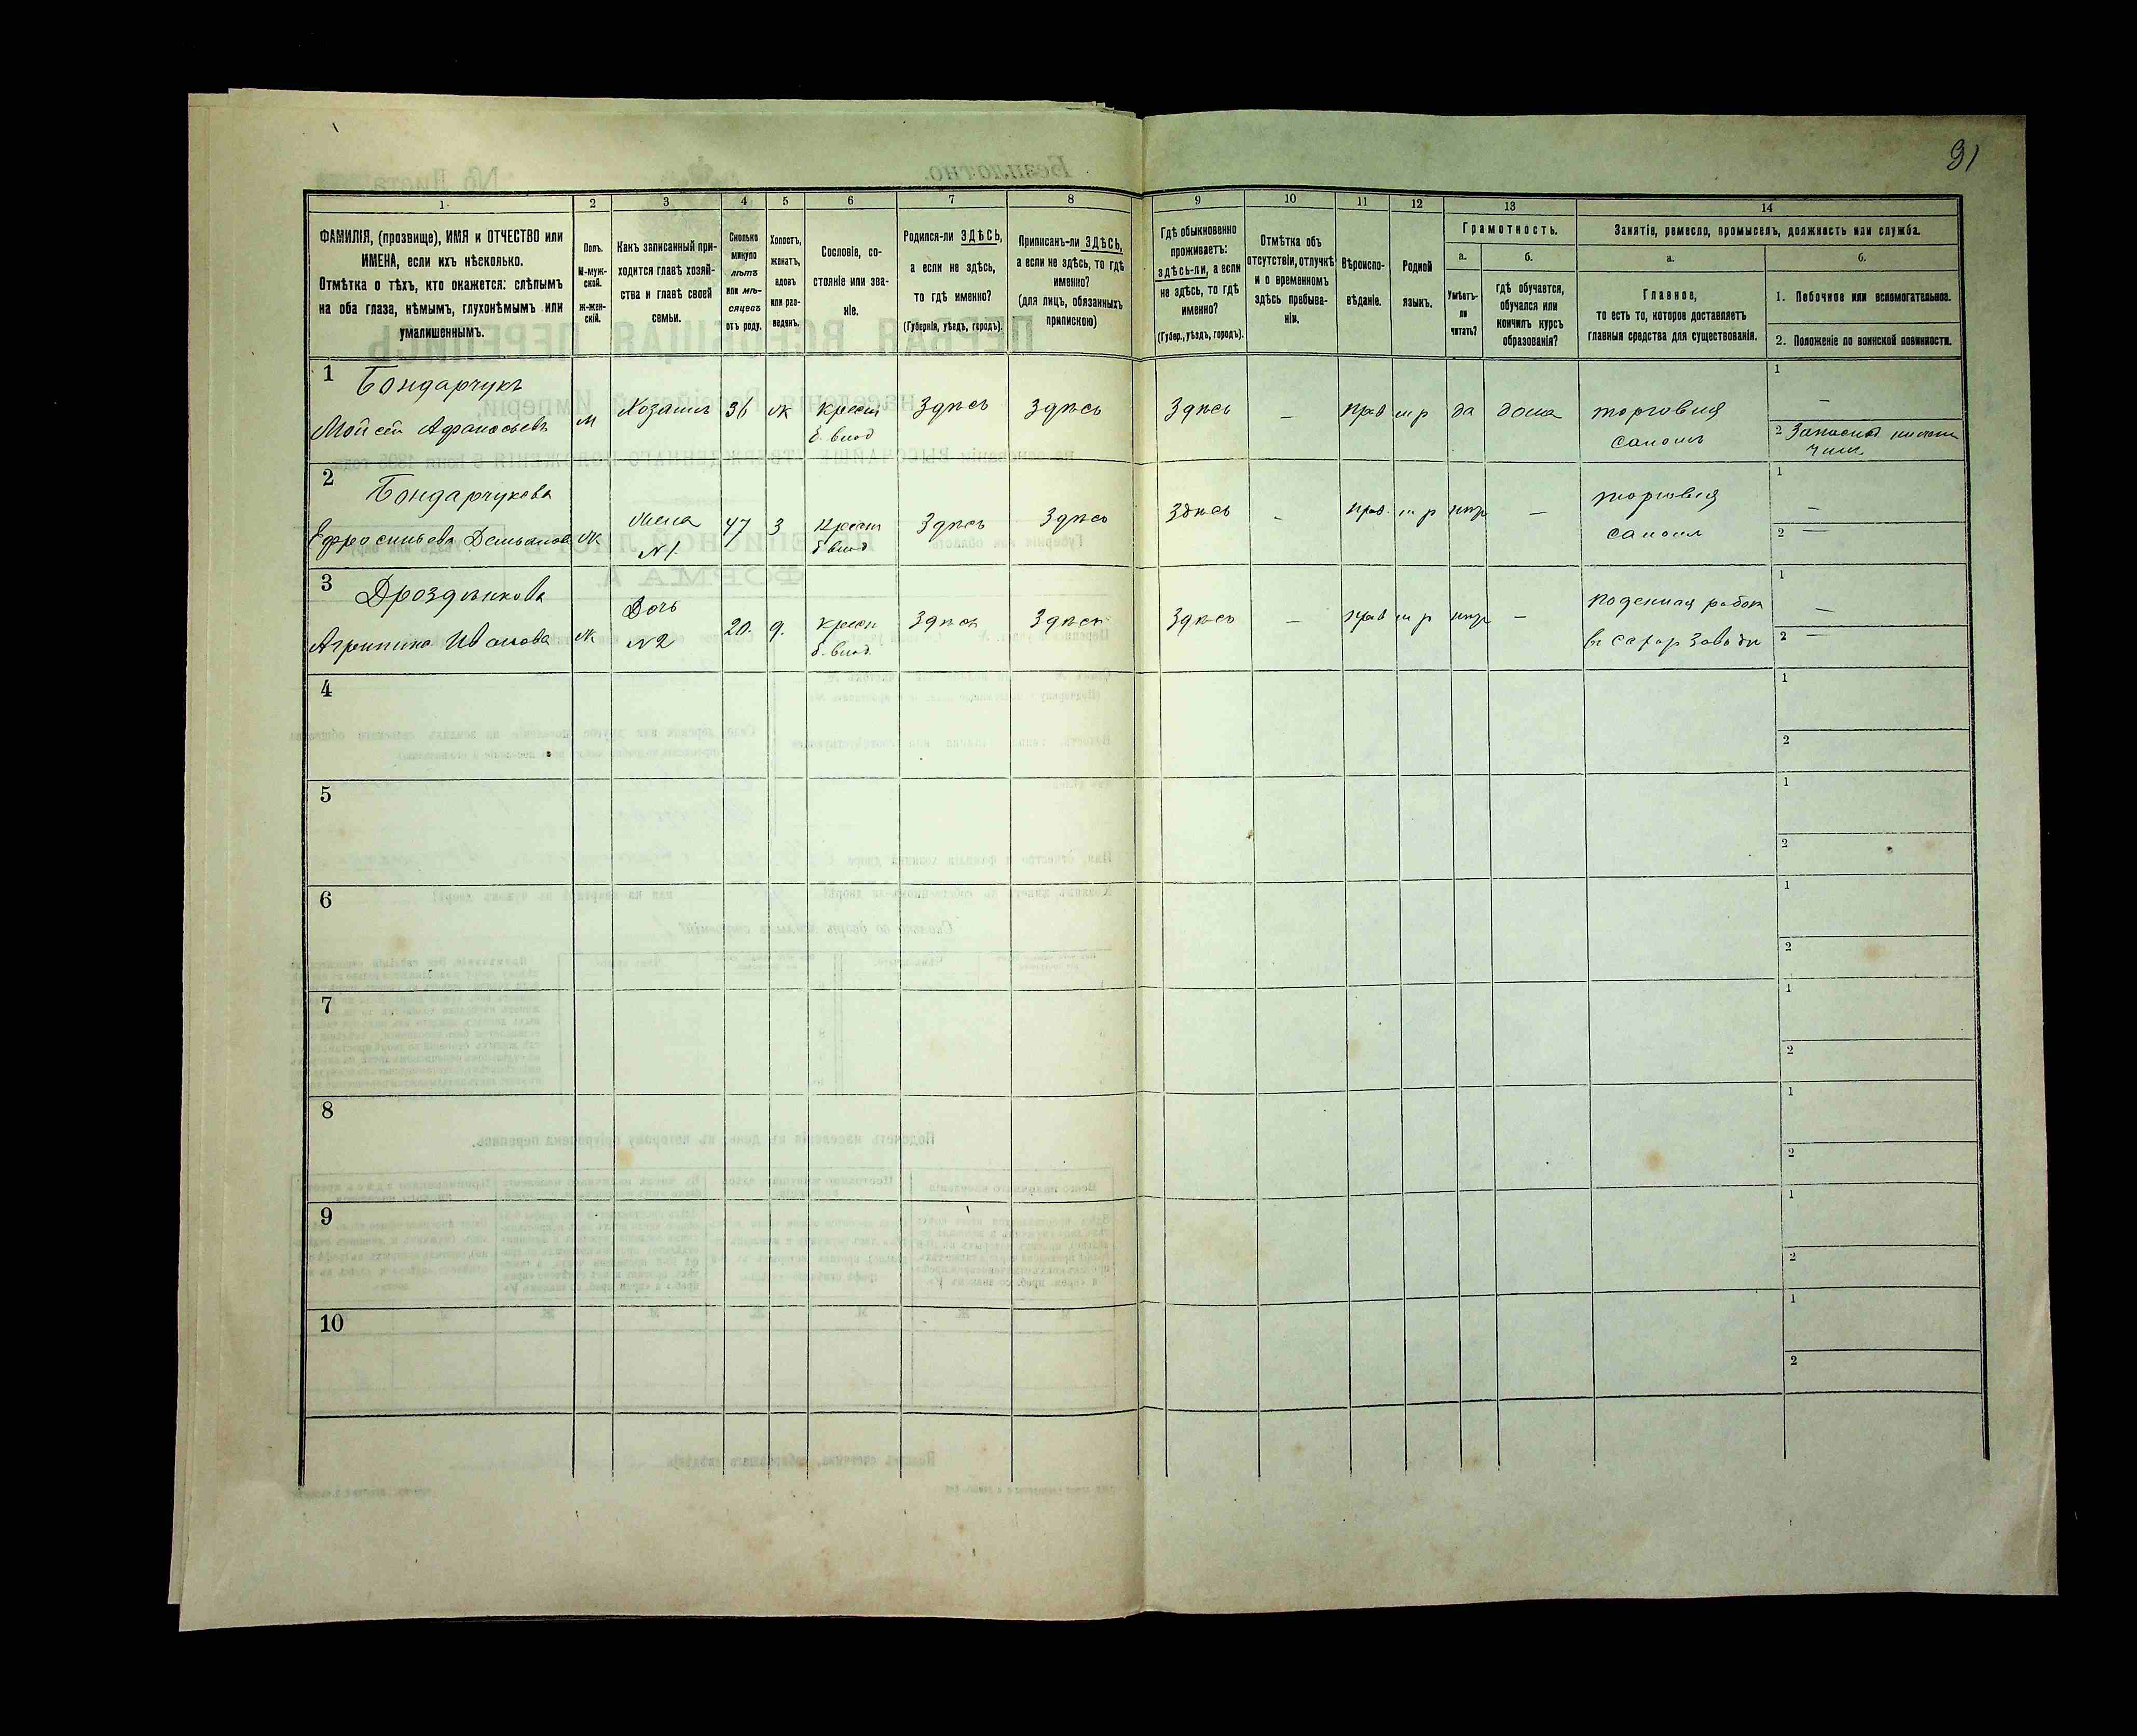 31
1
2
3
4
5
6
7
8
9
10
11
12
13
14
ФАМИЛІЯ, (прозвище), ИМЯ и ОТЧЕСТВО или
ИМЕНА, если ихъ нѣсколько.
Отмѣтка о тѣхъ, кто окажется: слѣпымъ
на оба глаза, нѣмымъ, глухонѣмымъ или
умалишеннымъ.
Полъ.
М-муж-
ской.
ж-жен-
скій.
Какъ записанный при-
ходится главѣ хозяй-
ства и главѣ своей
семьи.
Сколько
минуло
лѣтъ
или мѣ-
сяцевъ
отъ роду.
Холостъ,
женатъ,
вдовъ
или раз-
веденъ.
Сословіе, со-
стояніе или зва-
ніе.
Родился-ли ЗДѢСЬ,
а если не здѣсь,
то гдѣ именно?
(Губернія, уѣздъ, городъ).
Приписанъ-ли ЗДѢСЬ,
а если не здѣсь, то гдѣ
именно?
(для лицъ, обязанныхъ
припискою)
Гдѣ обыкновенно
проживаетъ:
здѣсь-ли, а если
не здѣсь, то гдѣ
именно?
(Губер., уѣздъ, городъ).
Отмѣтка объ
отсутствіи, отлучкѣ
и о временномъ
здѣсь пребыва-
ніи.
Вѣроиспо-
вѣданіе.
Родной
языкъ.
Грамотность.
а.
Умѣетъ-
ли
читать?
б.
гдѣ обучается,
обучался или
кончилъ курсъ
образованія?
Занятіе, ремесло, промыселъ, должность или служба.
а.
Главное,
то есть то, которое доставляетъ
главныя средства для существованія.
б.
1. Побочное или вспомогательное.
2. Положеніе по воинской повинности.
1 Бондарчукъ
Мойсей Афанасьевъ
м
Хозяинъ
36
ж
крест
б. влад
Здѣсь
Здѣсь
Здѣсь
—
прав
м р
да
дома
торговля
саломъ
1 —
2 Запасной
2 Бондарчукова
Ефросиньева Демьянова
ж
жена
N 1.
47
З
Крест
б влад
Здѣсь
Здѣсь
Здѣсь
-
прав.
м р
нѣтр
—
торговля
саломъ
1 —
2 —
3 Дроздѣикова
Агрипина Иванова
ж
Дочь
N 2
20.
д.
крест
б. влад.
Здѣсь
Здѣсь
Здѣсь
—
прав
м р
—
поденная работа
въ сахар заводѣ
1 —
2 —
4
1
2
5
1
2
6
1
2
7
1
2
8
1
2
9
1
2
10
1
2